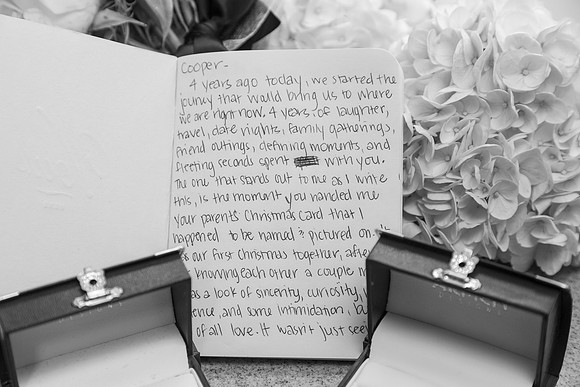 Cooper-
4 years ago today, we started the
journey that would bring us to where
we are right now. 4 years of laughter,
travel, date nights, family gatherings,
friend outings, defining moments, and
fleeting seconds spent with you.
The one that stands out to me as I write
this, is the moment you handed me
your parents' Christmas card that I
happened to be named & pictured on. It
as our first Christmas together, after
knowing each other a couple
as a look of sincerity, curiosity,
ence, and some intimidation, bu
of all love. It wasn't just see